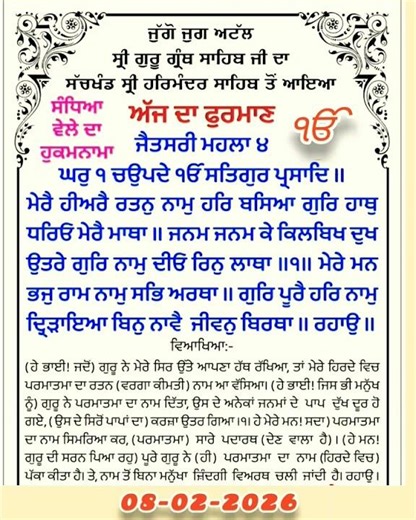 ਜੁੱਗੋ ਜੁਗ ਅਟੱਲ
ਸ੍ਰੀ ਗੁਰੂ ਗ੍ਰੰਥ ਸਾਹਿਬ ਜੀ ਦਾ
ਸੱਚਖੰਡ ਸ੍ਰੀ ਹਰਿਮੰਦਰ ਸਾਹਿਬ ਤੋਂ ਆਇਆ
ਸੰਧਿਆ
ਵੇਲੇ ਦਾ
ਹੁਕਮਨਾਮਾ
ਅੱਜ ਦਾ ਫੁਰਮਾਣ
ੴ
ਜੈਤਸਰੀ ਮਹਲਾ ੪
ਘਰੁ ੧ ਚਉਪਦੇ ੴ ਸਤਿਗੁਰ ਪ੍ਰਸਾਦਿ ॥
ਮੇਰੈ ਹੀਅਰੈ ਰਤਨੁ ਨਾਮੁ ਹਰਿ ਬਸਿਆ ਗੁਰਿ ਹਾਥੁ
ਧਰਿਓ ਮੇਰੈ ਮਾਥਾ ॥ ਜਨਮ ਜਨਮ ਕੇ ਕਿਲਬਿਖ ਦੁਖ
ਉਤਰੇ ਗੁਰਿ ਨਾਮੁ ਦੀਓ ਰਿਨੁ ਲਾਥਾ ॥੧॥ ਮੇਰੇ ਮਨ
ਭਜੁ ਰਾਮ ਨਾਮੁ ਸਭਿ ਅਰਥਾ ॥ ਗੁਰਿ ਪੂਰੈ ਹਰਿ ਨਾਮੁ
ਦ੍ਰਿੜਾਇਆ ਬਿਨੁ ਨਾਵੈ ਜੀਵਨੁ ਬਿਰਥਾ ॥ ਰਹਾਉ ॥
ਵਿਆਖਿਆ:-
(ਹੇ ਭਾਈ! ਜਦੋਂ) ਗੁਰੂ ਨੇ ਮੇਰੇ ਸਿਰ ਉੱਤੇ ਆਪਣਾ ਹੱਥ ਰੱਖਿਆ, ਤਾਂ ਮੇਰੇ ਹਿਰਦੇ ਵਿਚ
ਪਰਮਾਤਮਾ ਦਾ ਰਤਨ (ਵਰਗਾ ਕੀਮਤੀ) ਨਾਮ ਆ ਵੱਸਿਆ। (ਹੇ ਭਾਈ! ਜਿਸ ਭੀ ਮਨੁੱਖ
ਨੂੰ) ਗੁਰੂ ਨੇ ਪਰਮਾਤਮਾ ਦਾ ਨਾਮ ਦਿੱਤਾ, ਉਸ ਦੇ ਅਨੇਕਾਂ ਜਨਮਾਂ ਦੇ ਪਾਪ ਦੁੱਖ ਦੂਰ ਹੋ
ਗਏ, (ਉਸ ਦੇ ਸਿਰੋਂ ਪਾਪਾਂ ਦਾ) ਕਰਜ਼ਾ ਉਤਰ ਗਿਆ।੧। ਹੇ ਮੇਰੇ ਮਨ! ਸਦਾ) ਪਰਮਾਤਮਾ
ਦਾ ਨਾਮ ਸਿਮਰਿਆ ਕਰ, (ਪਰਮਾਤਮਾ) ਸਾਰੇ ਪਦਾਰਥ (ਦੇਣ ਵਾਲਾ ਹੈ)। (ਹੇ ਮਨ!
ਗੁਰੂ ਦੀ ਸਰਨ ਪਿਆ ਰਹੁ) ਪੂਰੇ ਗੁਰੂ ਨੇ (ਹੀ) ਪਰਮਾਤਮਾ ਦਾ ਨਾਮ (ਹਿਰਦੇ ਵਿਚ)
ਪੱਕਾ ਕੀਤਾ ਹੈ। ਤੇ, ਨਾਮ ਤੋਂ ਬਿਨਾ ਮਨੁੱਖਾ ਜ਼ਿੰਦਗੀ ਵਿਅਰਥ ਚਲੀ ਜਾਂਦੀ ਹੈ। ਰਹਾਉ।
08-02-2026